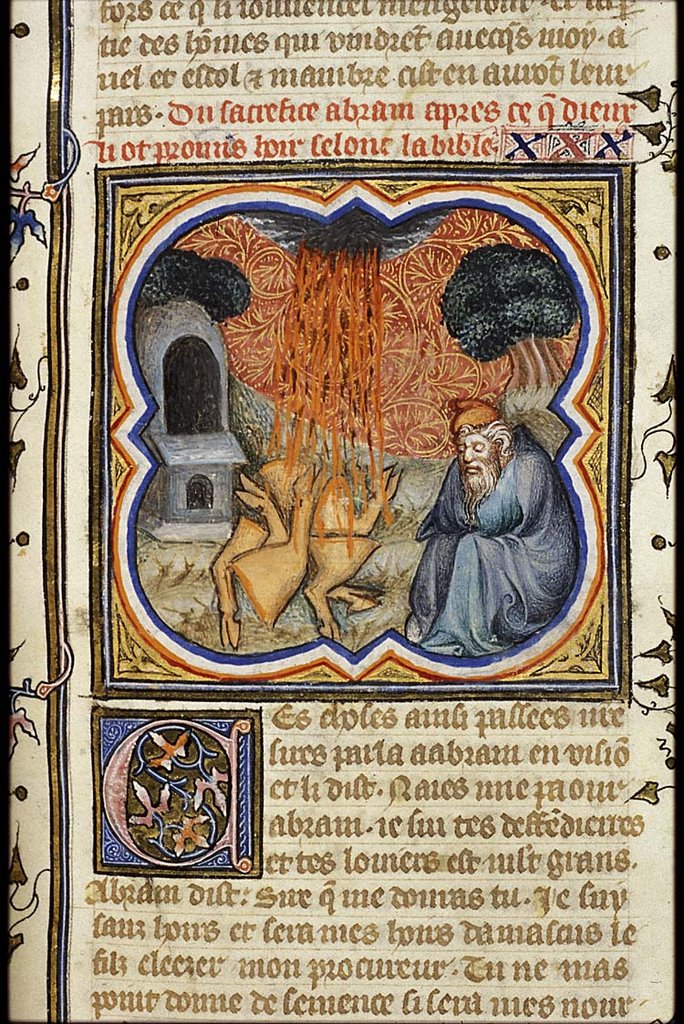 tie des hõmes qui vindrẽt auecq̃s moy. a
nel et escol ⁊ mambre cist en aurõt leur
pars. Du sacrefice abram apres ce q̃ dieux
li ot promis hoir selonc la bible.
Ces choses ainsi passees me
sires parla a abram en visiõ
et li dist. Naies mie paour
abram. ie sui tes deffẽdierres
et tes louiers est mlt grans.
Abram dist: Sire q̃ me donras tu. Je suy
sanz hoirs et sera mes hoirs damascus le
filz eleezer mon procureur. Tu ne mas
point donne de semence si sera mes nour